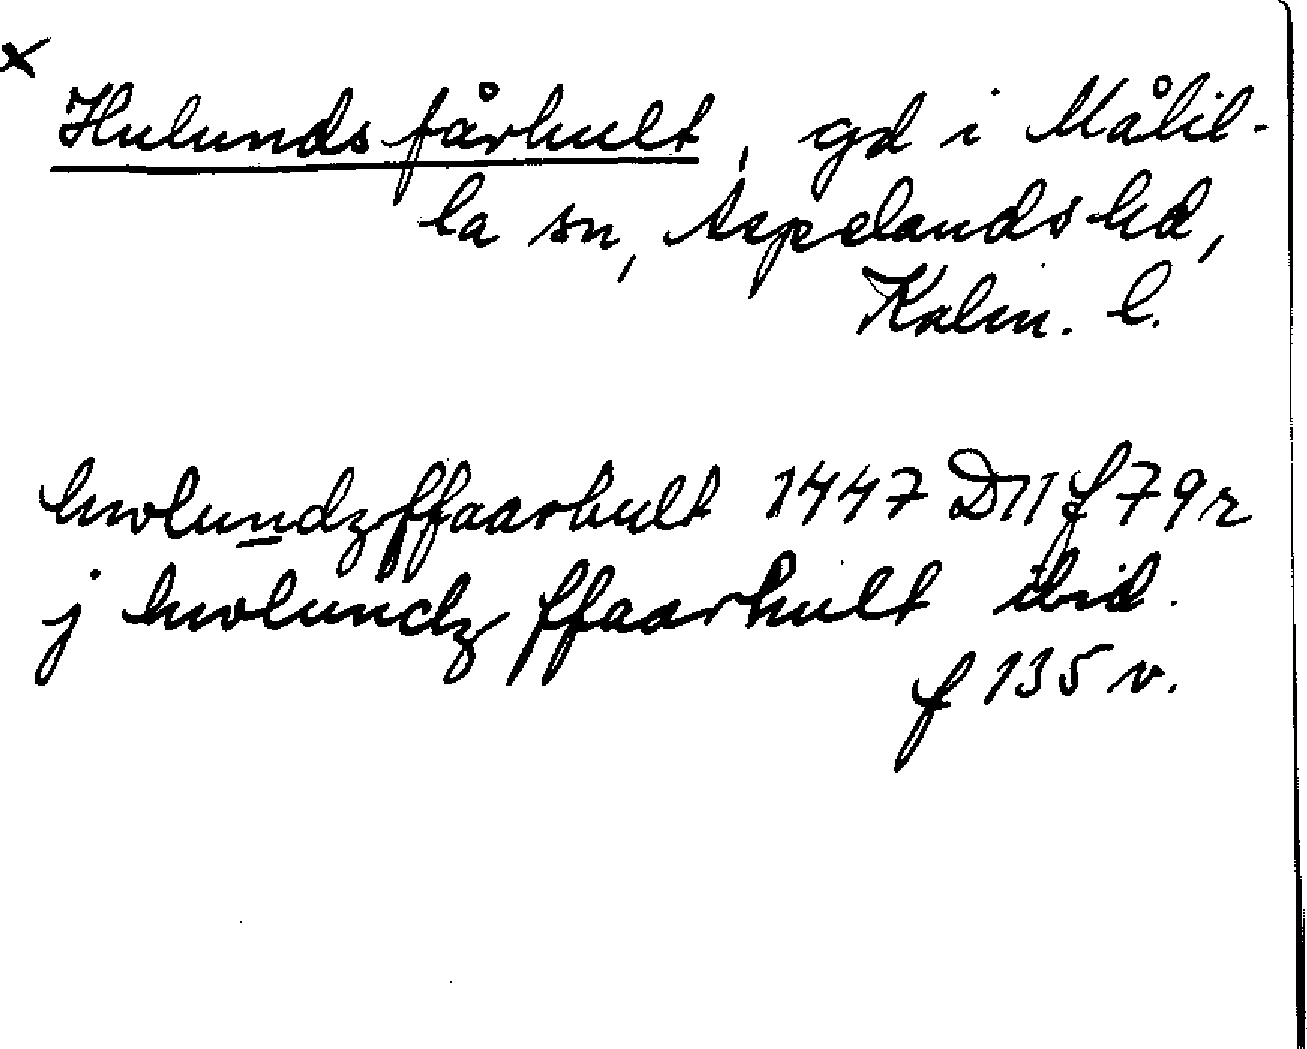 x
Hulunds fårhult, gd i Målil-
la sn, Aspelands hd,
Kalm. l.
hwlundz ffaarhult 1447 D 11 f 79 r
j hwlundz ffaarhult ibid.
f 135 v.